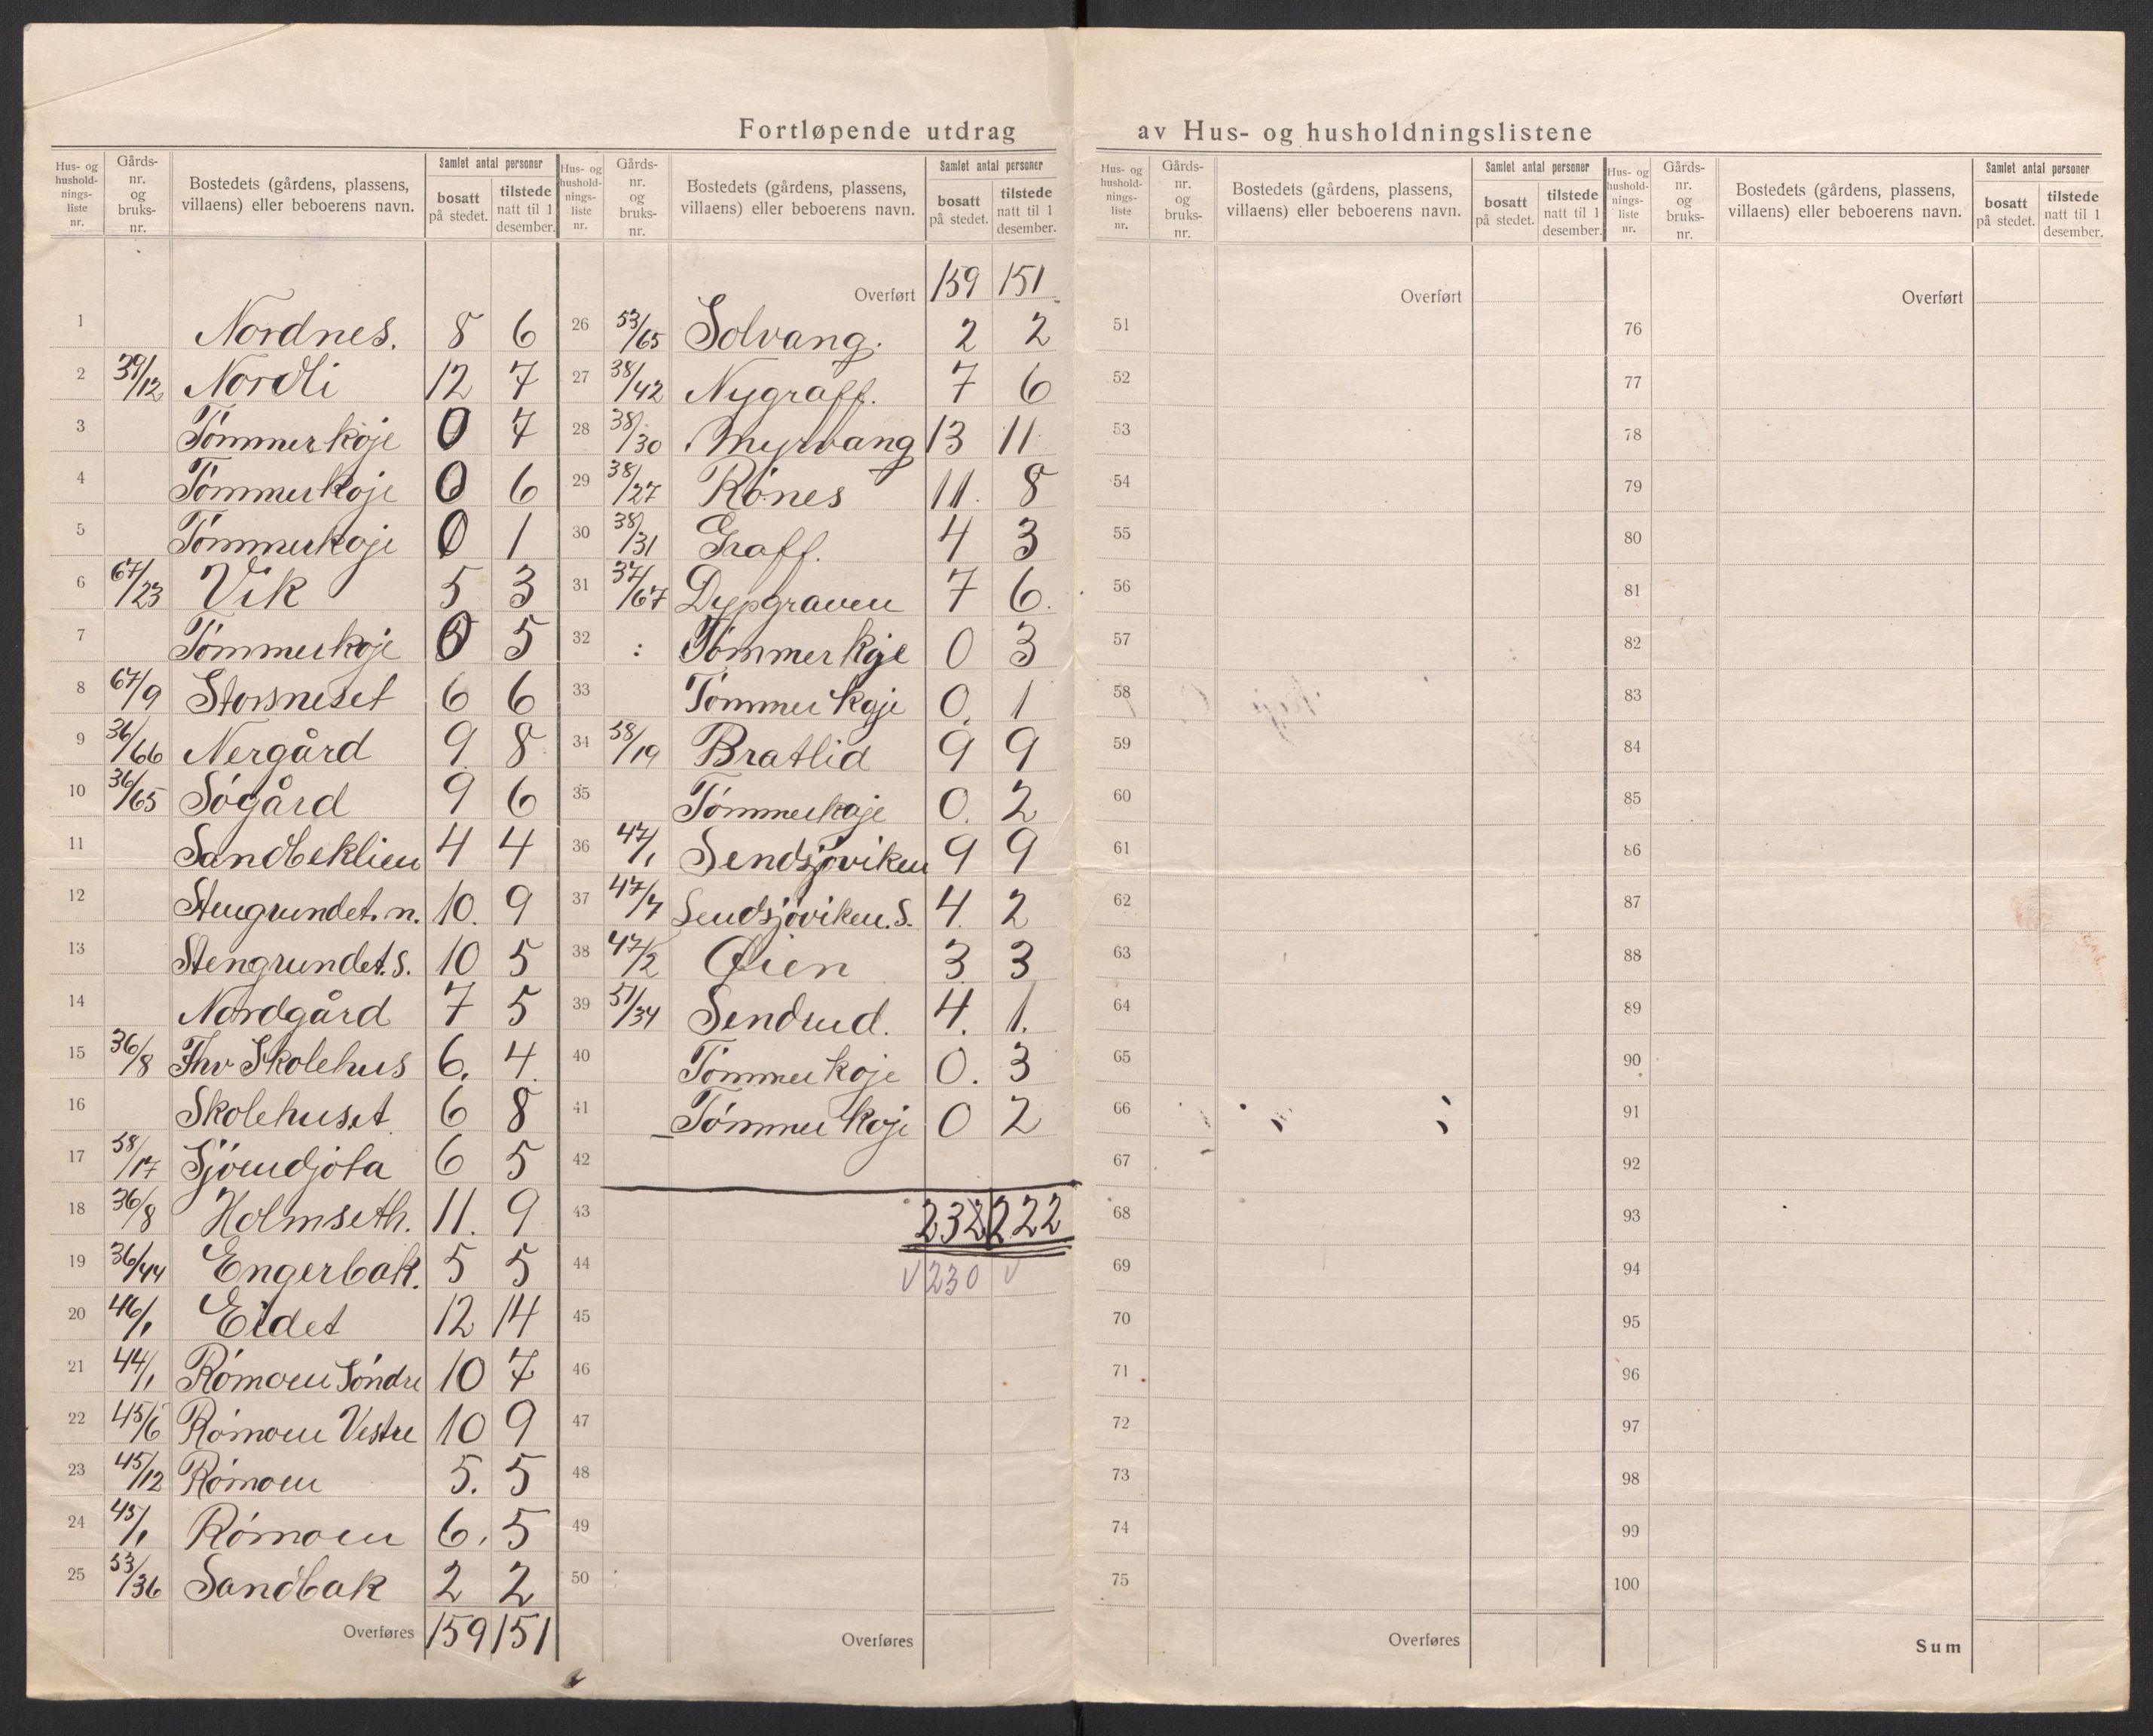 Fortløpende utdrag av Hus- og husholdningslistene
Hus- og husholdnings- liste nr. | Gårds- nr. og bruks- nr. | Bostedets (gårdens, plassens, villaens) eller beboerens navn. | Samlet antal personer | bosatt på stedet. | tilstede natt til 1 desember.
1 Nordnes. 8 6
2 39/12 Nordli 12 7
3 Tømmerkoje 0 7
4 Tømmerkoje 0 6
5 Tømmerkoje 0 1
6 67/23 Vik 5 3
7 Tømmerkoje 0 5
8 67/9 Storsneset 6 6
9 36/66 Nergård 9 8
10 36/65 Søgård 9 6
11 Sandbeklien 4 4
12 Stengrundet. n. 10. 9
13 Stengrundet. S. 10 5
14 Nordgård 7 5
15 36/8 Skolehus 6. 4.
16 Skolehuset 6 8
17 38/17 6 5
18 36/8 Holmseth. 11. 9
19 36/44 Engerbak. 5 5
20 46/1 Eidet 12 14
21 44/1 Rømoen Søndre 10 7
22 45/6 Rømoen Vestre 10 9
23 45/12 Rømoen 5. 5
24 45/1 Rømoen 6. 5
25 53/36 Sandbak 2 2
Overføres 159 151
Hus- og husholdnings- liste nr. | Gårds- nr. og bruks- nr. | Bostedets (gårdens, plassens, villaens) eller beboerens navn. | Samlet antal personer | bosatt på stedet. | tilstede natt til 1 desember.
Overført 159 151
26 53/65 Solvang. 2 2
27 38/42 Nygraff. 7 6
28 38/30 Myrvang 13 11
29 38/27 Rønes 11. 8
30 38/31 Graff. 4 3
31 37/67 Dypgraven 7 6.
32 : Tømmerkoje 0 3
33 Tømmerkoje 0. 1
34 38/19 Bratlid 9 9
35 Tømmerkoje 0. 2
36 47/1 Sendsjøviken 9 9
37 47/7 Sendsjøviken. S. 4. 2
38 47/2 Øien 3 3
39 51/34 Sendrud. 4. 1.
40 Tømmerkoje 0. 3
41 Tømmerkoje 0 2
42
43 232 222
44 230
45
46
47
48
49
50
Overføres
Hus- og husholdnings- liste nr. | Gårds- nr. og bruks- nr. | Bostedets (gårdens, plassens, villaens) eller beboerens navn. | Samlet antal personer | bosatt på stedet. | tilstede natt til 1 desember.
Overført
51
52
53
54
55
56
57
58
59
60
61
62
63
64
65
66
67
68
69
70
71
72
73
74
75
Overføres
Hus- og husholdnings- liste nr. | Gårds- nr. og bruks- nr. | Bostedets (gårdens, plassens, villaens) eller beboerens navn. | Samlet antal personer | bosatt på stedet. | tilstede natt til 1 desember.
Overført
76
77
78
79
80
81
82
83
84
85
86
87
88
89
90
91
92
93
94
95
96
97
98
99
100
Sum